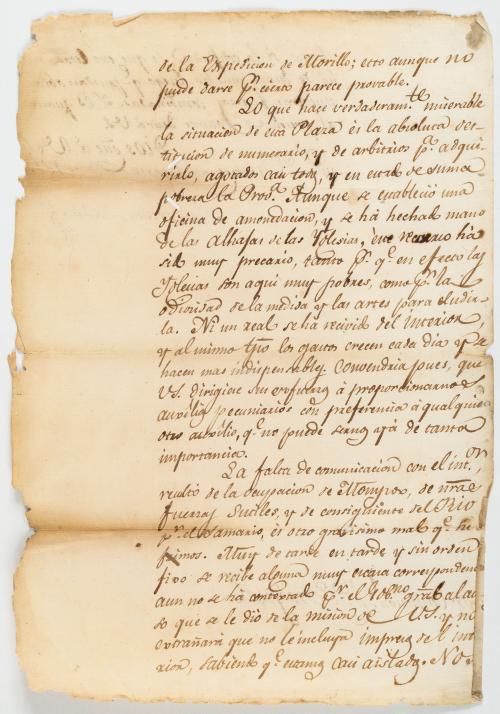 de la Expedicion de Morillo; esto aunque no
puede darse p.r cierto parece provable.
Lo que hace verdaderam.te miserable
la situacion de esta Plaza es la absoluta des-
titucion de numerario, y de arbitrios p.a adqui-
rirlo, agotados casi todos, y en estado de suma
pobreza la Prov.a Aunque se estableció una
oficina de amonedacion, y se há hechado mano
de las Alhajas de las Yglesias, este recurso há
sido muy precario, tanto p.r q.e en efecto las
Yglesias son aqui muy pobres, como p.r la
odiosidad de la medida y las artes para eludir-
la. Ni un real se há recivido del interior,
y al mismo tpo los gastos crecen cada dia y se
hacen mas indispensables. Convendria pues, que
VS. dirigiese su esfuerzo á proporcionarnos
auxilios pecuniarios con preferencia á qualquier
otro auxilio, q.e no puede sernos yá de tanta
importancia.
La falta de comunicacion con el int.or,
resulto de la ocupacion de Mompox, de nras
fuerzas Sutiles, y de consiguiente del Rio
p.r el Samario, es otro gravisimo mal q.e su-
frimos. Muy de tarde en tarde y sin orden
fixo se recibe alguna muy escasa correspondencia
aun no se há contextado p.r el Gob.no gral al avi-
so que se le dio de la mision de VS. y no
extrañará que no le incluya impresos del inte-
rior, sabiendo q.e estamos casi aislados. No